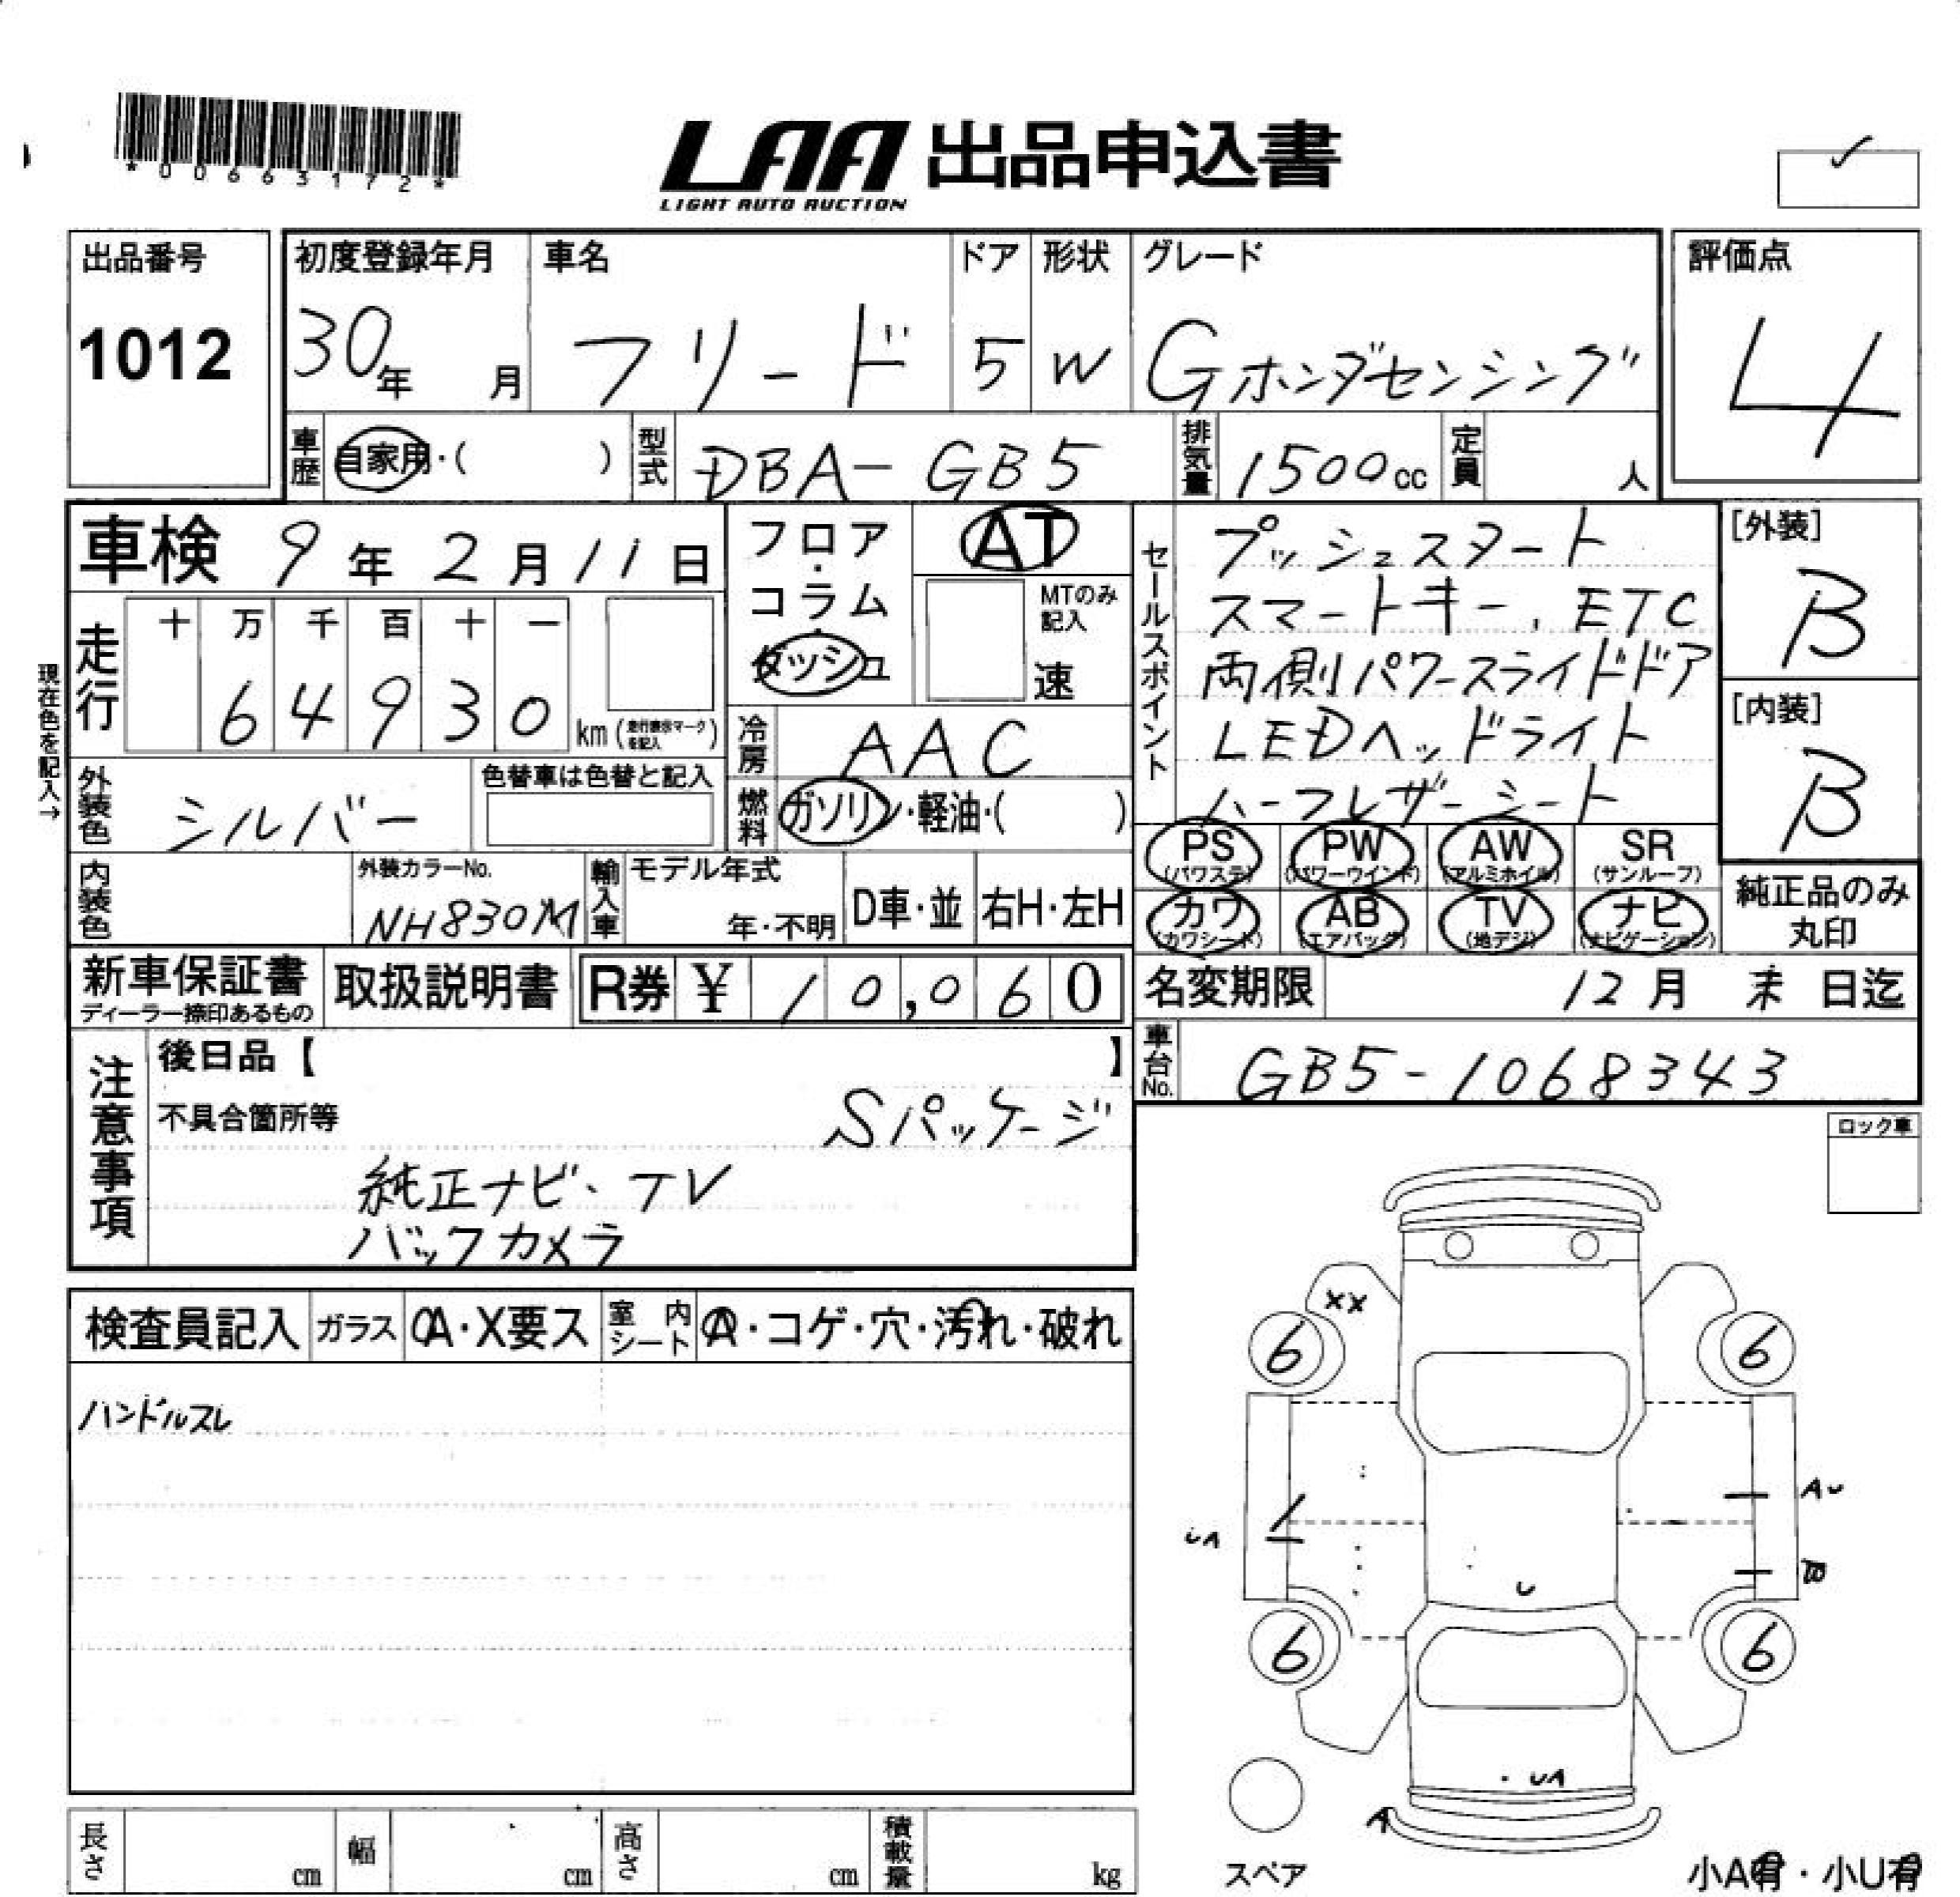 *00663172*
LAA 出品申込書
LIGHT AUTO AUCTION
出品番号 初度登録年月 車名 ドア 形状 グレード 評価点
1012 30年 月 フリード 5 W Gホンダセンシング 4
車歴 自家用・( ) 型式 DBA-GB5 排気量 1500cc 定員 人
車検 9年2月11日 フロア・コラム・ダッシュ AT
MTのみ記入 速
セールスポイント
プッシュスタート
スマートキー, ETC
両側パワースライドドア
LEDヘッドライト
ハーフレザーシート
[外装] B
[内装] B
現在色を記入→
走行 十 万 千 百 十 一
64930 km (走行表示マークを記入)
冷房 AAC
外装色 シルバー 色替車は色替と記入
燃料 ガソリン・軽油・( )
PS (パワステ) PW (パワーウインド) AW (アルミホイル) SR (サンルーフ)
カワ (カワシート) AB (エアバッグ) TV (地デジ) ナビ (ナビゲーション)
純正品のみ丸印
内装色 外装カラーNo. NH830M 輸入車 モデル年式 年・不明 D車・並 右H・左H
新車保証書 ディーラー捺印あるもの 取扱説明書 R券 ¥ 10,060
名変期限 12月 末 日迄
車台No. GB5-1068343
注意事項 後日品【 】
不具合箇所等 Sパッケージ
純正ナビ、TV
バックカメラ
ロック車
検査員記入 ガラス A・X要ス 室内シート A・コゲ・穴・汚れ・破れ
ハンドルスレ
XX
6 6
AU
UA
B
U
6 6
UA
A
スペア
小A有・小U有
長さ cm 幅 cm 高さ cm 積載量 kg